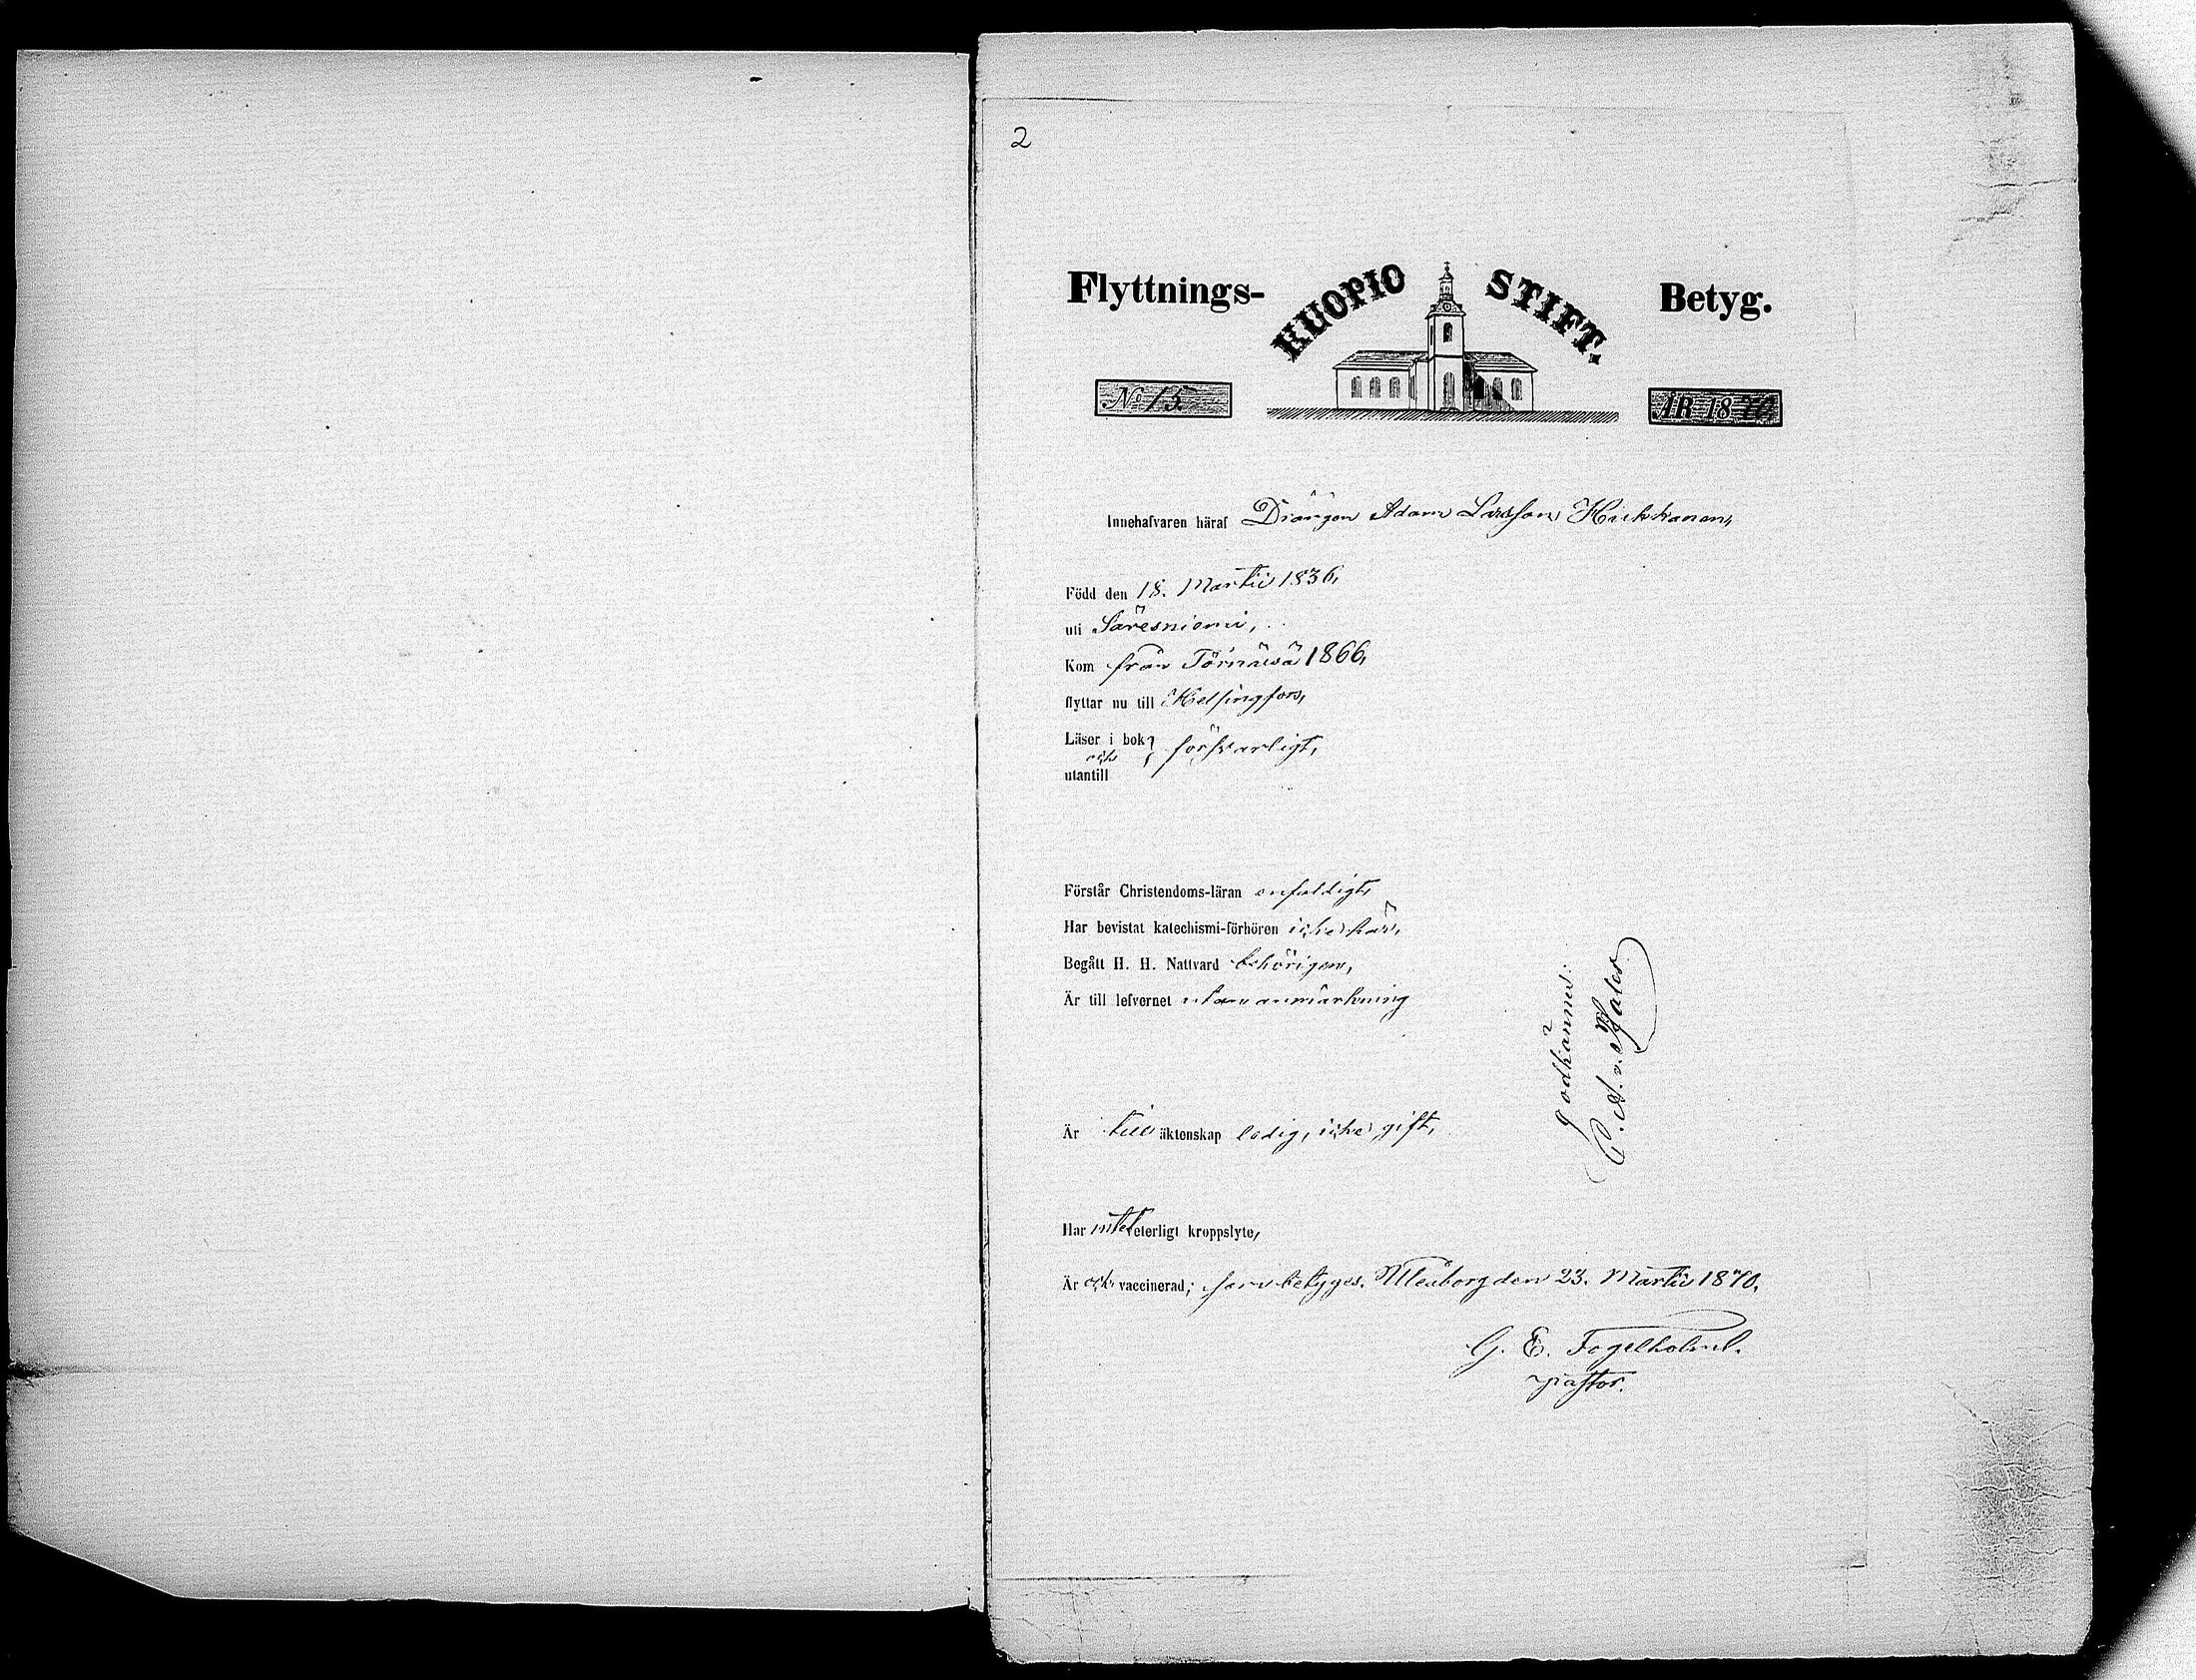 2
Flyttnings- KUOPIO STIFT. Betyg.
No 15 ÅR 1870
Innehafvaren häraf Drängen Adam Larsson Hukkanen,
Född den 18. Martii 1836,
uti Säresniemi,
Kom från Törnäwä 1866,
flyttar nu till Helsingfors,
Läser i bok } försvarligt,
och
utantill
Förstår Christendoms-läran enfaldigt,
Har bevistat katechismi-förhören icke här,
Begått H. H. Nattvard behörigen,
Är till lefvernet utan anmärkning
Är till äktenskap ledig, icke gift,
Har intet eterligt kroppslyte,
Är ock vaccinerad; som betygas. Uleåborg den 23. Martii 1870.
G. E. Fogelholm.
pastor.
godkännes:
C. A. v.